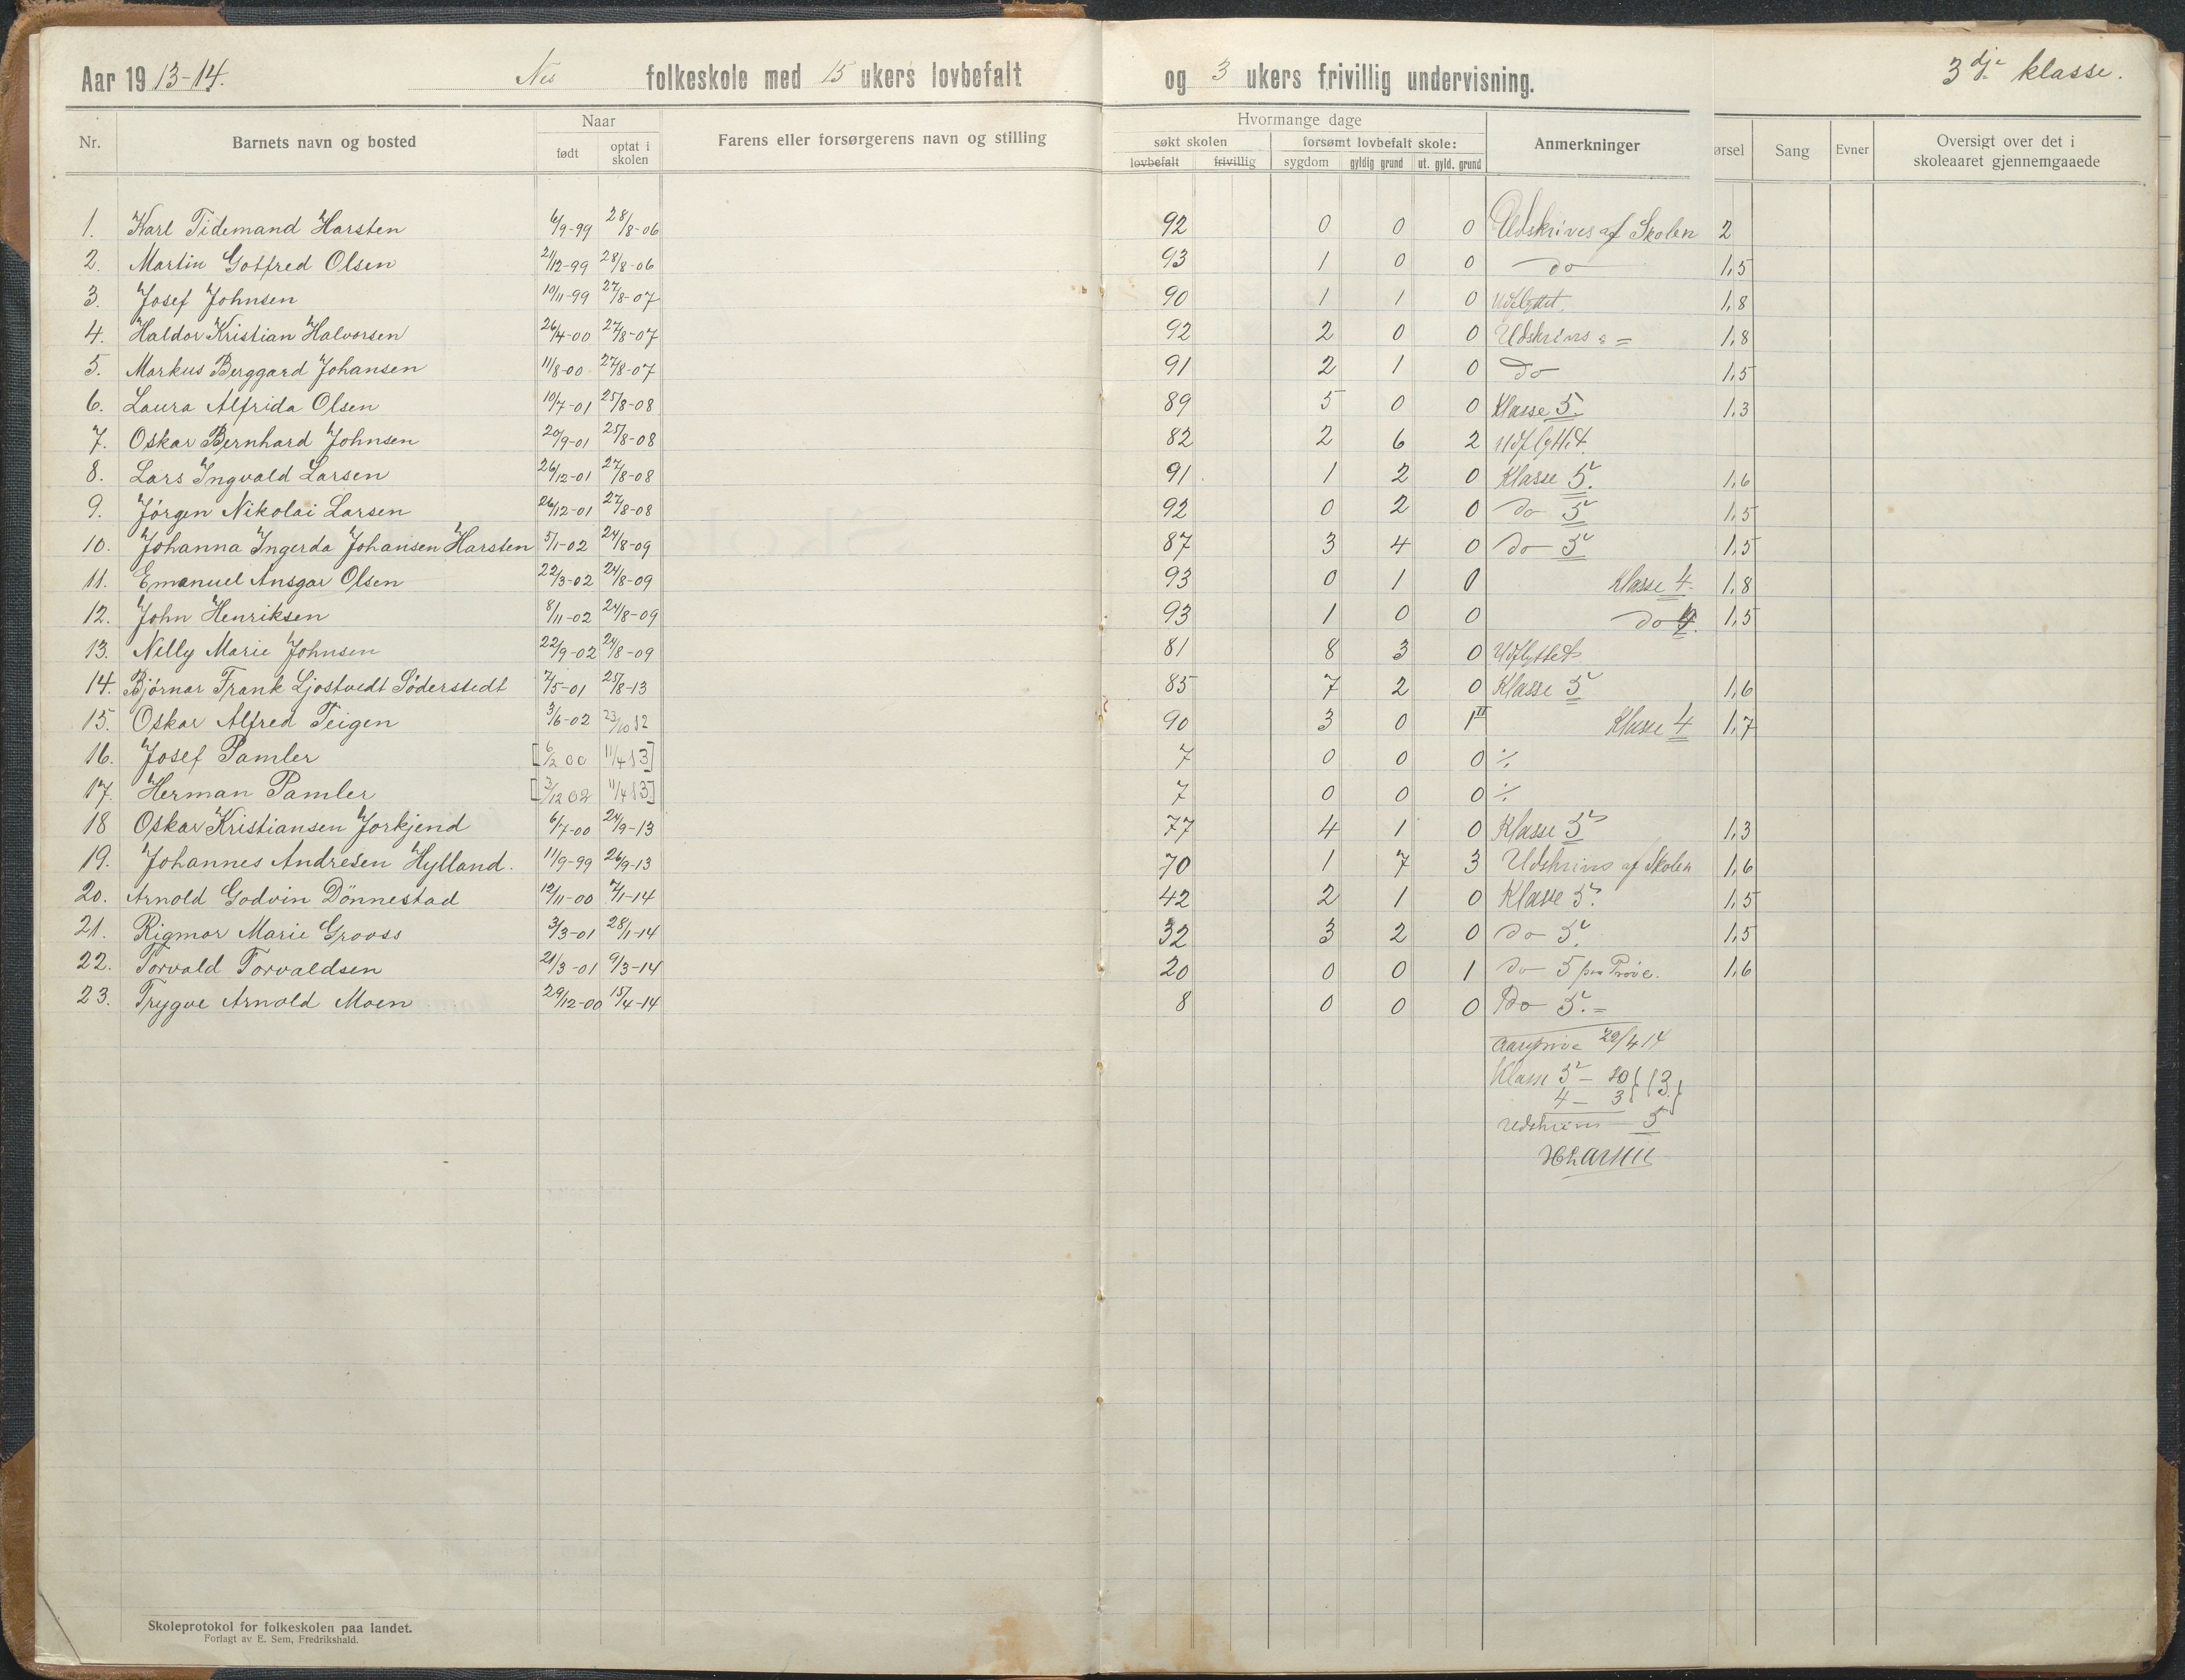 Aar 1913-14. Nes folkeskole med 15 ukers lovbefalt og 3 ukers frivillig undervisning. 3dje klasse.
Nr. Barnets navn og bosted Naar Farens eller forsørgerens navn og stilling Hvormange dage Anmerkninger ørsel Sang Evner Oversigt over det i skoleaaret gjennemgaaede
født optat i skolen søkt skolen forsømt lovbefalt skole:
lovbefalt frivillig sygdom gyldig grund ut. gyld. grund
1. Karl Tidemand Harsten 6/9-99 28/8-06 92 0 0 0 Udskrives af Skolen 2
2. Martin Gotfred Olsen 21/12-99 28/8-06 93 1 0 0 do 1,5
3. Josef Johnsen 10/11-99 27/8-07 90 1 1 0 Udflyttet. 1,8
4. Haldor Kristian Halvorsen 26/4-00 27/8-07 92 2 0 0 Udskrives 1,8
5. Markus Berggard Johansen 11/8-00 27/8-07 91 2 1 0 do 1,5
6. Laura Alfrida Olsen 10/7-01 25/8-08 89 5 0 0 Klasse 5. 1,3
7. Oskar Bernhard Johnsen 20/9-01 25/8-08 82 2 6 2 Udflyttet.
8. Lars Ingvald Larsen 26/12-01 27/8-08 91 1 2 0 Klasse 5. 1,6
9. Jørgen Nikolai Larsen 26/12-01 27/8-08 92 0 2 0 do 5 1,5
10. Johanna Ingerda Johansen Harsten 5/1-02 24/8-09 87 3 4 0 do 5 1,5
11. Emanuel Ansgar Olsen 22/3-02 24/8-09 93 0 1 0 Klasse 4. 1,8
12. John Henriksen 8/11-02 24/8-09 93 1 0 0 do 4. 1,5
13. Nelly Marie Johnsen 22/9-02 24/8-09 81 8 3 0 Udflyttet
14. Bjørnar Frank Ljostvedt Söderstedt 7/5-01 25/8-13 85 7 2 0 Klasse 5 1,6
15. Oskar Alfred Teigen 3/6-02 23/10 12 90 3 0 1 Klasse 4 1,7
16. Josef Pamler [6/2 00 11/4 13] 7 0 0 0 %
17. Herman Pamler [3/12 02 11/4 13] 7 0 0 0 %
18 Oskar Kristiansen Jorkjend 6/7-00 24/9-13 77 4 1 0 Klasse 5 1,3
19. Johannes Andresen Hylland. 11/9-99 26/9-13 70 1 7 3 Udskrives af Skolen 1,6
20. Arnold Godvin Dönnestad 12/11-00 7/1-14 42 2 1 0 Klasse 5. 1,5
21. Rigmor Marie Grooss 3/3-01 28/1-14 32 3 2 0 do 5. 1,5
22. Torvald Torvaldsen 21/3-01 9/3-14 20 0 0 1 do 5 paa Prøve. 1,6
23. Trygve Arnold Moen 29/12-00 15/4-14 8 0 0 0 Do 5. =
Aarsprøve 29/4 14
Klasse 5 - 10 } 13 }
4 - 3
Udskrives 5
H Larsen
Skoleprotokol for folkeskolen paa landet.
Forlagt av E. Sem, Fredrikshald.